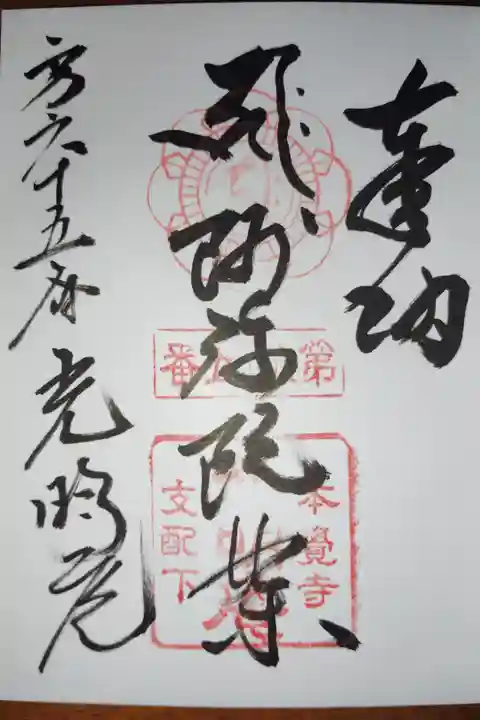 奉納
阿弥陀
第六十五番 光明庵
第 番
本覺寺
支配下